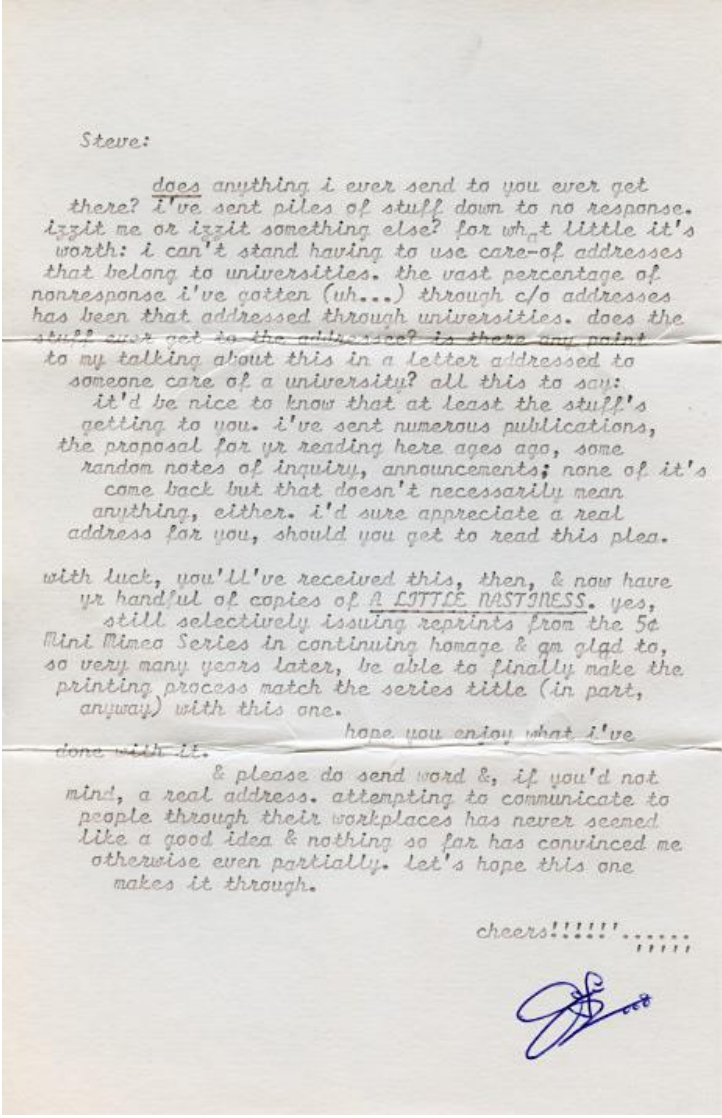 Steve:
does anything i ever send to you ever get
there? i've sent piles of stuff down to no response.
izzit me or izzit something else? for what little it's
worth: i can't stand having to use care-of addresses
that belong to universities. the vast percentage of
nonresponse i've gotten (uh...) through c/o addresses
has been that addressed through universities. does the
stuff ever get to the addressee? is there any point
to my talking about this in a letter addressed to
someone care of a university? all this to say:
it'd be nice to know that at least the stuff's
getting to you. i've sent numerous publications,
the proposal for yr reading here ages ago, some
random notes of inquiry, announcements; none of it's
come back but that doesn't necessarily mean
anything, either. i'd sure appreciate a real
address for you, should you get to read this plea.
with luck, you'll've received this, then, & now have
yr handful of copies of A LITTLE NASTINESS. yes,
still selectively issuing reprints from the 5¢
Mini Mimeo Series in continuing homage & am glad to,
so very many years later, be able to finally make the
printing process match the series title (in part,
anyway) with this one.
hope you enjoy what i've
done with it.
& please do send word &, if you'd not
mind, a real address. attempting to communicate to
people through their workplaces has never seemed
like a good idea & nothing so far has convinced me
otherwise even partially. let's hope this one
makes it through.
cheers!!!!!'......
'''''